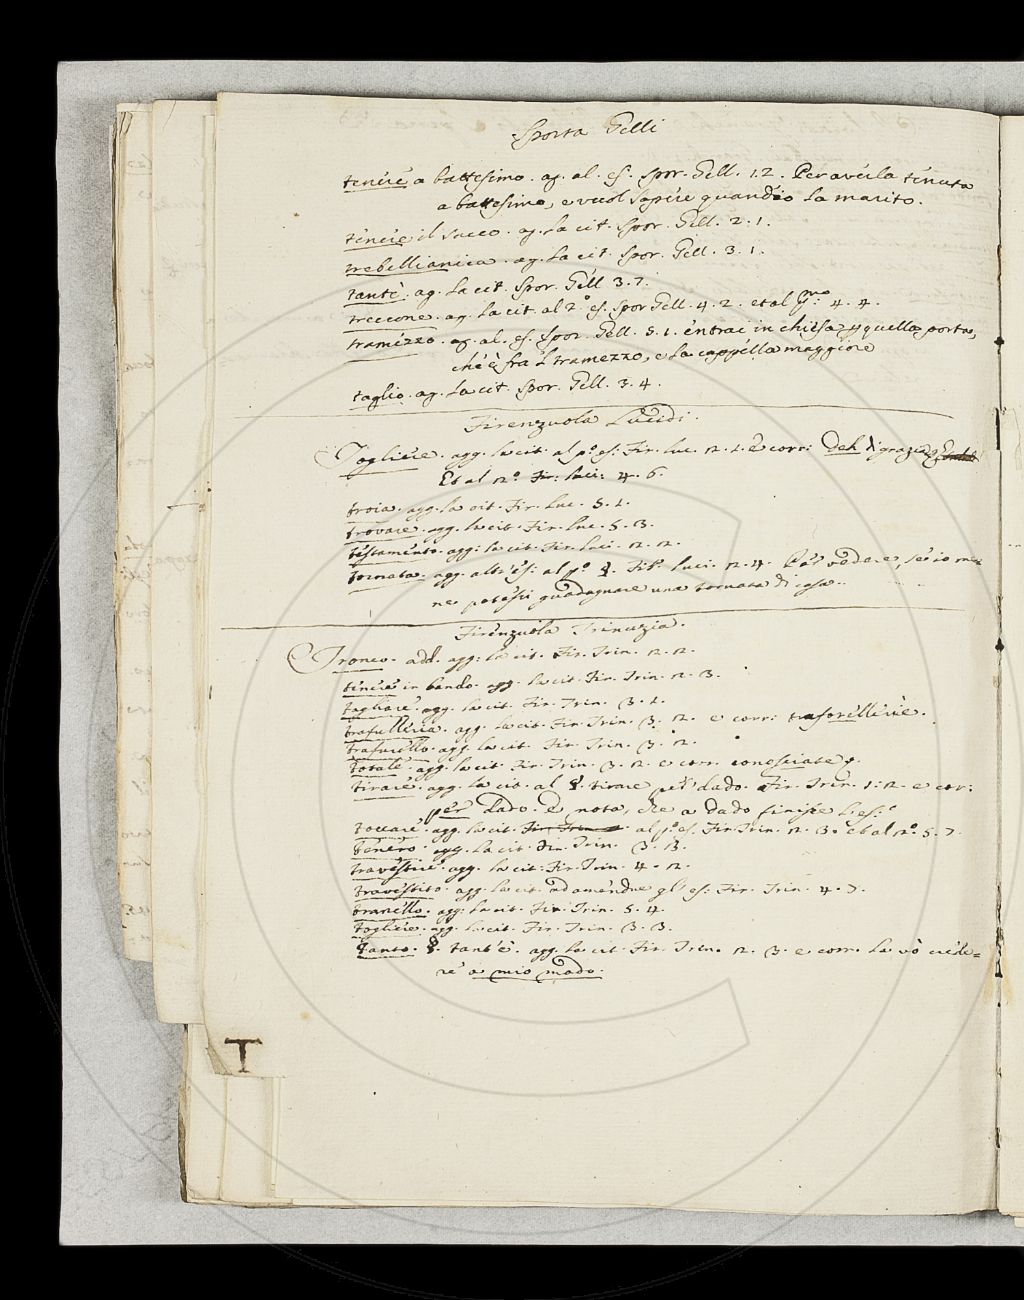 Sporta Gelli
tenere a battesimo. ag. al. es. Spor. Gell. 1.2. Per averla tenuta
a battesimo, e vuol sapere quand'io la marito.
tenere il sacco. ag. la cit. Spor. Gell. 2. 1.
trebellianica. ag. la cit. Spor. Gell. 3. 1.
tantè. ag. la cit. Spor. Gell 3. 7.
treccone. ag. la cit. al 2.o es. Spor Gell. 4. 2. et al pmo: 4. 4.
tramezzo. ag. al. es. Spor. Gell. 5. 1. entrai in chiesa p quella porta,
che è fra 'l tramezzo, e la cappella maggiore
taglio. ag. la cit. Spor. Gell. 3. 4.
Firenzuola Lucidi.
Togliere. agg. la cit. al po. es. Fir. Luc. 2. 1. e corr: deh di grazia
Et al 2.o Fir: luci: 4. 6.
troia. agg. la cit. Fir. Luc. 5. 1.
trovare. agg. la cit. Fir. Luc. 5. 3.
testamento. agg: la cit. Fir. Luci. 2. 2.
tornata. agg. altr'es: al po. §. Fir. Luci. 2. 4. Per vedere, se io me
ne potessi guadagnare una tornata di casa.
Firenzuola Trinuzia.
Tronco. add. agg: la cit. Fir. Trin. 2. 2.
tenere in bando. agg. la cit. Fir. Trin. 2. 3.
tagliare. agg. la cit. Fir. Trin. 3. 1.
trafurelleria. agg. la cit. Fir. Trin. 3. 2. e corr: traforellerie.
trafurello. agg. la cit. Fir. Trin. 3. 2.
totale. agg. la cit. Fir. Trin. 3. 2. e corr. conosciate p.
tirare. agg. la cit. al §. tirare pel dado. Fir. Trin. 1: 2. e cor:
per dado. e nota, che a dado finisce l'es:
toccare. agg. la cit. Fir. Trin. al po. es. Fir. Trin. 2. 3. et al 2.o 5. 7.
tenero. agg. la cit. Fir. Trin. 3. 3.
travestire. agg. la cit: Fir. Trin 4. 2.
travestito. agg. la cit. ad amendue gl' es: Fir. Trin. 4. 7.
tranello. agg: la cit. Fir. Trin. 5. 4.
togliere. agg. la cit. Fir. Trin. 3. 3.
Tanto. §. tant'è. agg. la cit. Fir. Trin. 2. 3. e corr. la vò vede=
re a mio modo.
T